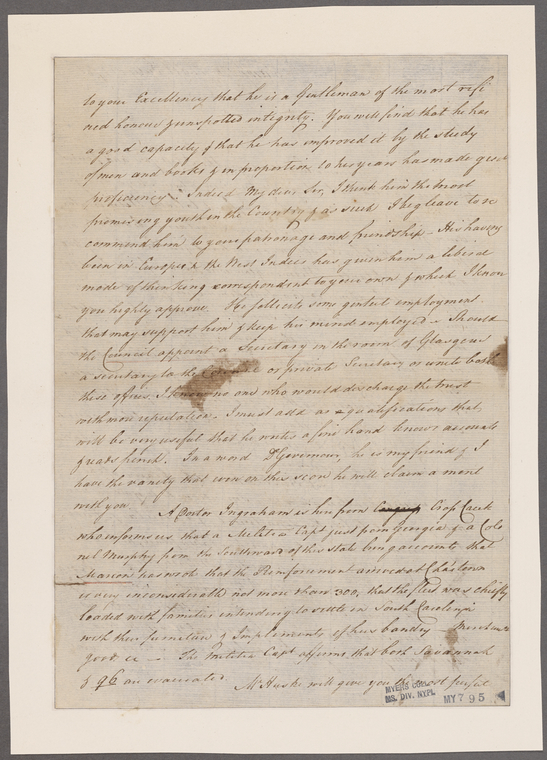 to your Excellency that he is a Gentleman of the most refi
ned honour & unspotted integrity. You will find that he has
a good capacity & that he has improved it by the study
of men and books & in proportion to his years has made great
proficiency. Indeed My dear Sir, I think him the most
promising youth in the Country & as such I beg leave to re
commend him to your patronage and friendship. His having
been in Europe & the West Indies has given him a liberal
mode of thinking correspondent to your own & which I know
you highly approve. He sollicits some genteel employment
that may support him & keep his mind employed. Should
the Council appoint a Secretary in the room of Glasgow
a secretary to the or private Secretary or unite both
these offices, I know no one who would discharge the trust
with more reputation. I must add as qualifications that,
will be very useful that he writes a fine hand knows accounts
& reads french. In a word Dr Governour, he is my friend & I
have the vanity that even on this score he will claim a merit
with you
A Doctor Ingraham is here from Crop Creek
who informs us that a Militia Capt just from Georgia & a Colo
nel Murphy from the Southward of this state bring accounts that
Marion has wrote that the Reinforcement arrived at Chas town
is very inconsiderable not more than 300, that the fleet was chiefly
loaded with families intending to settle in South Carolina
with their furniture & Implements of husbandry
good &c — The militia Capt affirms that both Savannah
& 96 are evacuated
Mr Huske will give you the most
MYERS COLL.
MS. DIV. NYPL
MY 795